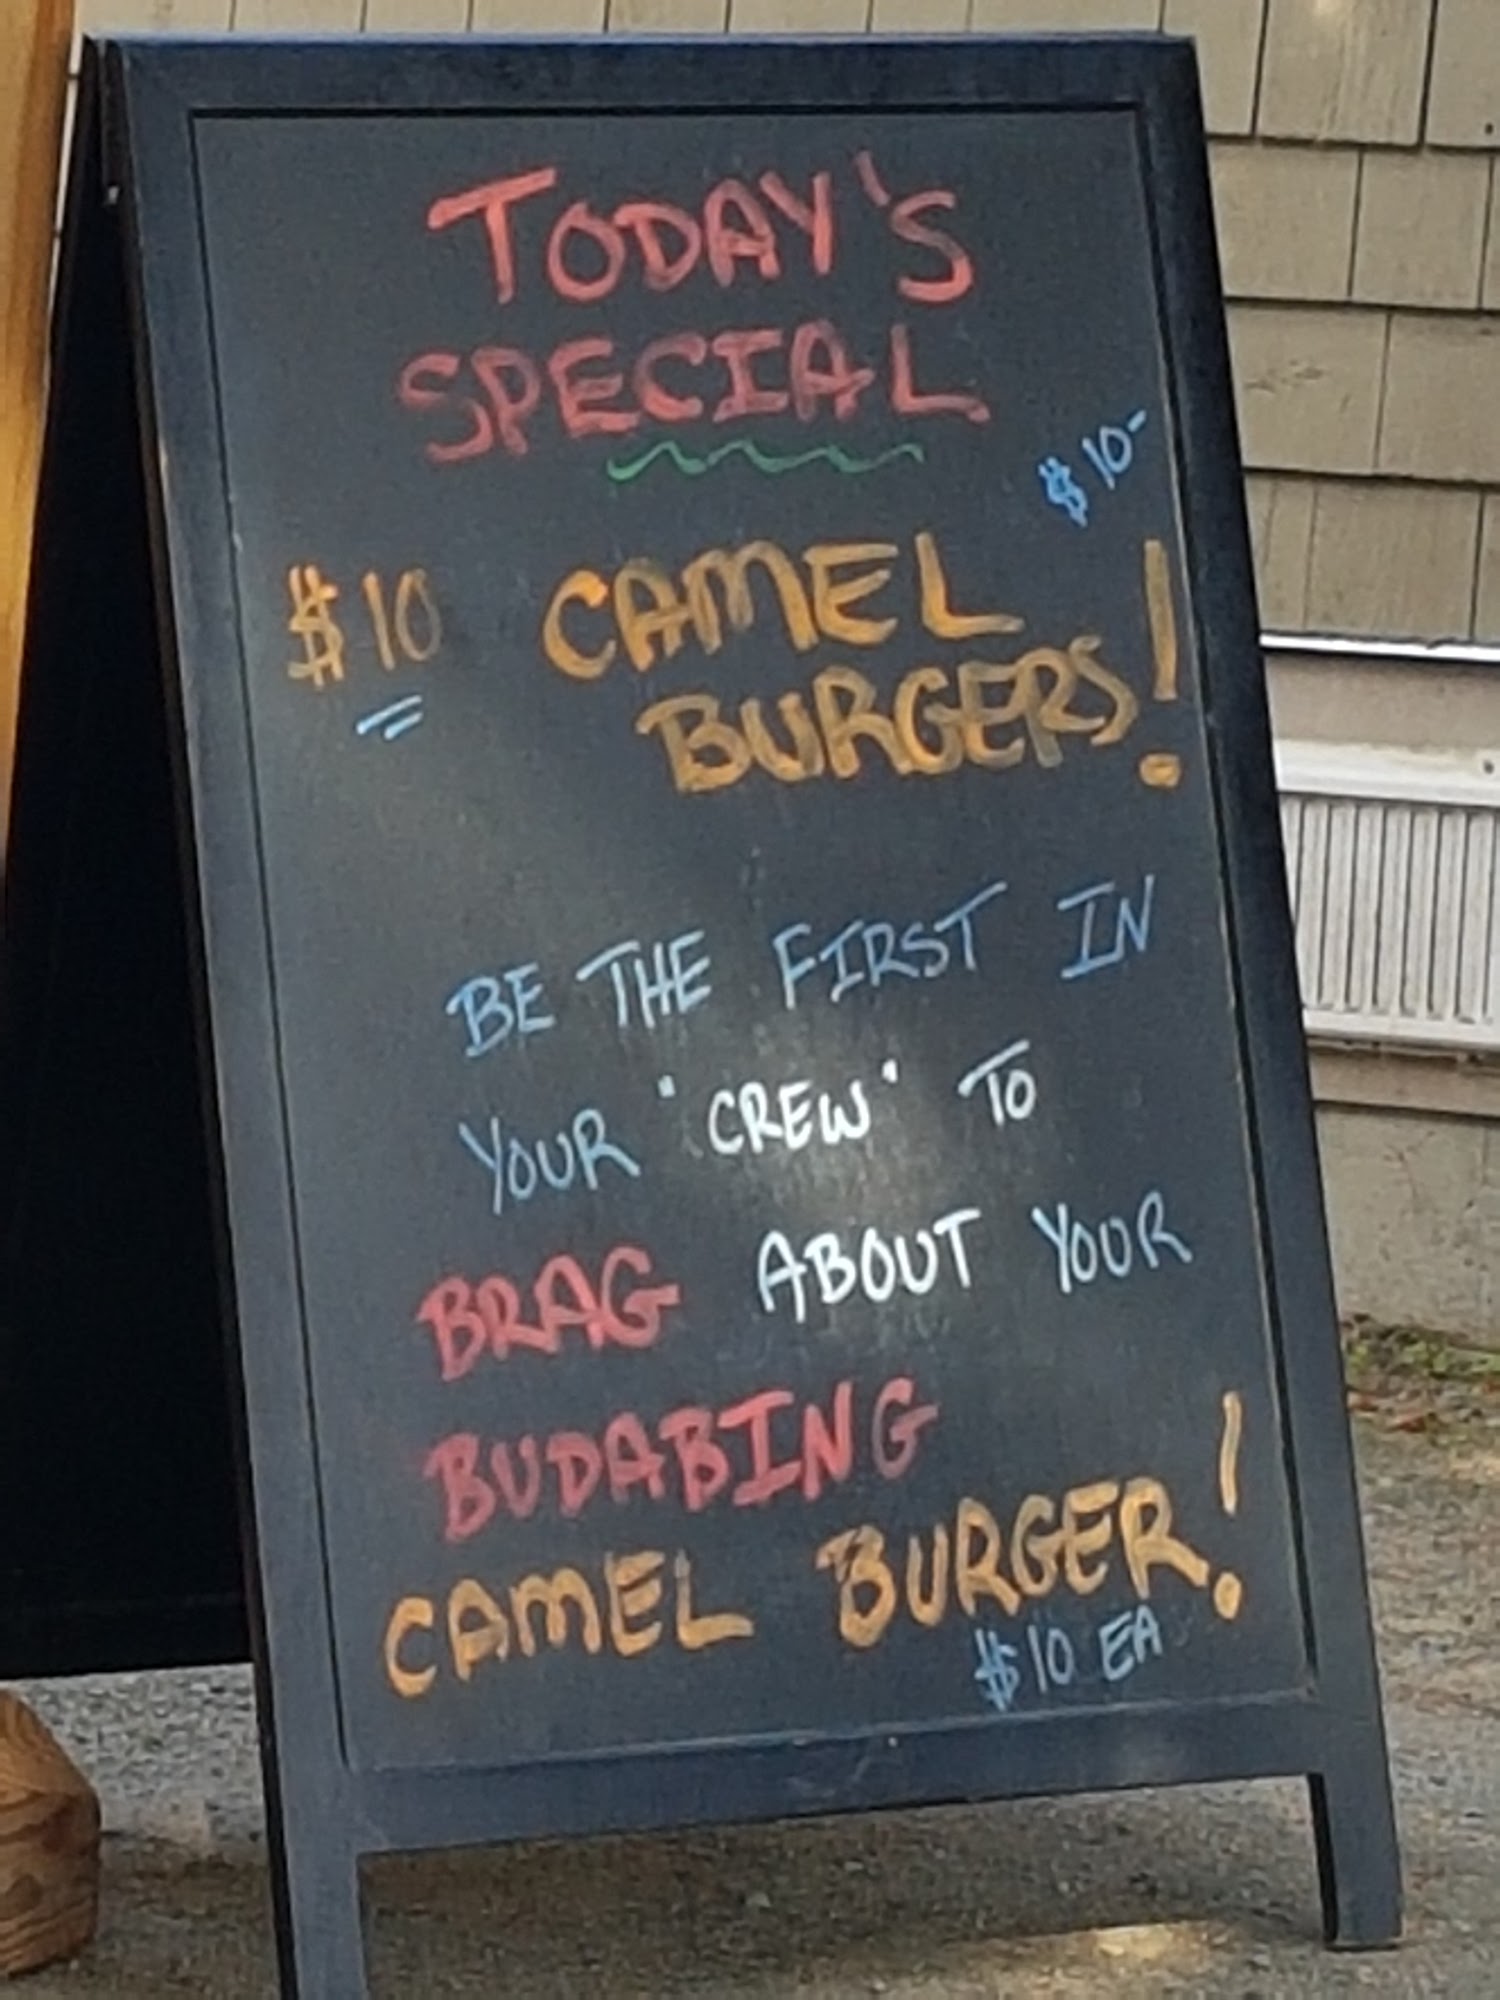 TODAY'S
SPECIAL
$10-
$10 CAMEL
BURGERS!
BE THE FIRST IN
YOUR "CREW" TO
BRAG ABOUT YOUR
BUDABING
CAMEL BURGER!
$10 EA